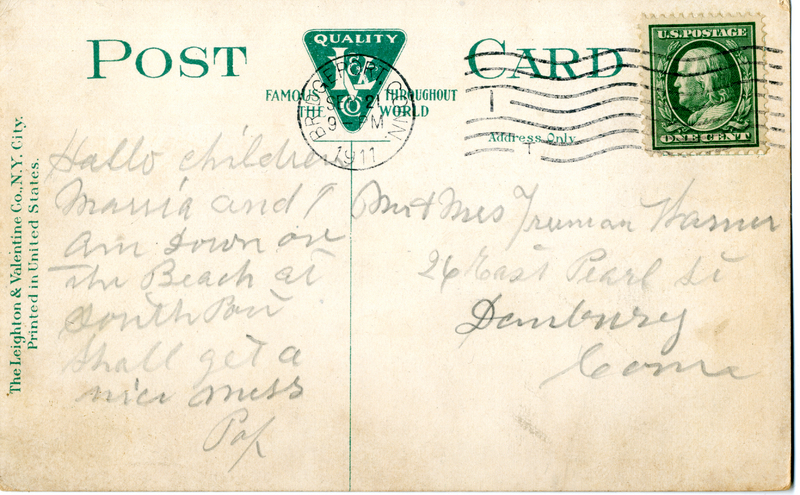 POST CARD
QUALITY
L & V
CO
FAMOUS THROUGHOUT
THE WORLD
BRIDGEPORT, CONN
SEP 2
9 - PM
1911
U.S. POSTAGE
ONE CENT
Address Only
The Leighton & Valentine Co., N.Y. City.
Printed in United States.
Hallo children
Mama and I
am down on
the Beach at
South
Shall get a
nice mess
Pop
Mr & Mrs Truman Warner
26 East Pearl St
Danbury
Conn